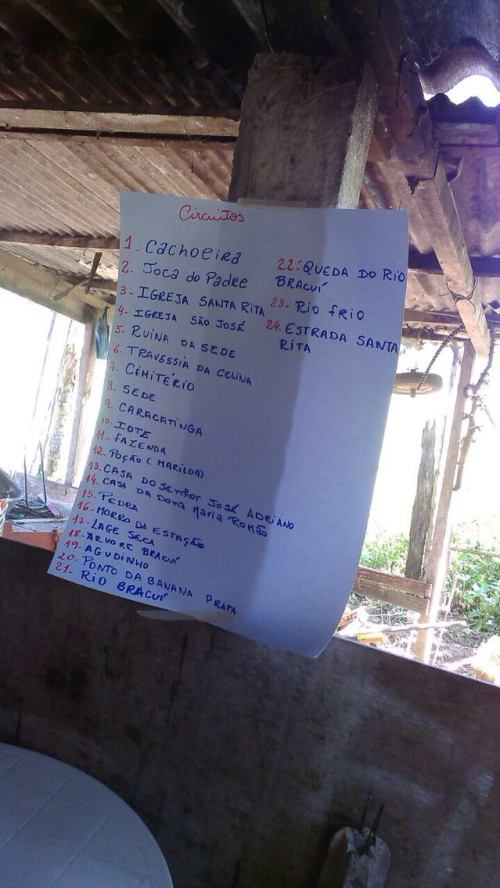 Circuitos
1- Cachoeira
2- Joca do Padre
3- IGREJA SANTA RITA
4- IGREJA SÃO JOSÉ
5- RUINA DA SEDE
6- TRAVESSIA DA COLINA
7- CEMITÉRIO
8- SEDE
9- CARACATINGA
10- IOTE
11- FAZENDA
12- POÇÃO (MARILDA)
13- CASA DO SENHOR JOSÉ ADRIANO
14- CASA DA DONA MARIA ROMÃO
15- PEDRA
16- MORRO DA ESTAÇÃO
17- LAGE SECA
18- ARVORE BRACUÍ
19- AGUDINHO
20- PONTO DA BANANA PRATA
21- RIO BRACUÍ
22- QUEDA DO RIO
BRACUÍ
23- RIO FRIO
24- ESTRADA SANTA
RITA